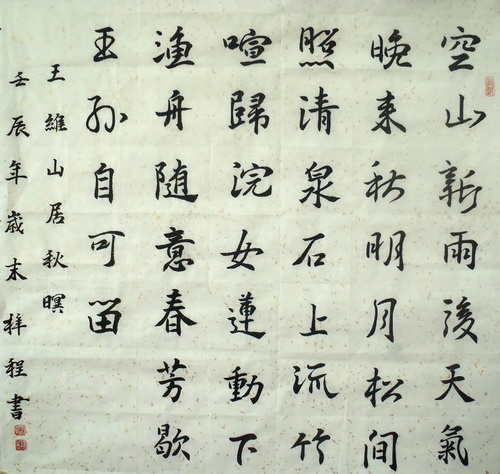 空山新雨後天氣
晚来秋明月松间
照清泉石上流竹
喧歸浣女蓮動下
渔舟随意春芳歇
王孙自可留
王維山居秋暝
壬辰年歲末梓程書